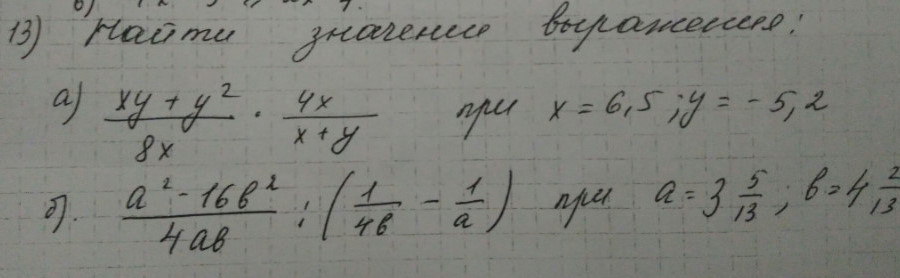 в)
13) Найти значение выражения:
а) (xy + y²)/(8x) · (4x)/(x + y) при x = 6,5; y = -5,2
б). (a² - 16b²)/(4ab) : (1/(4b) - 1/a) при a = 3 5/13; b = 4 2/13